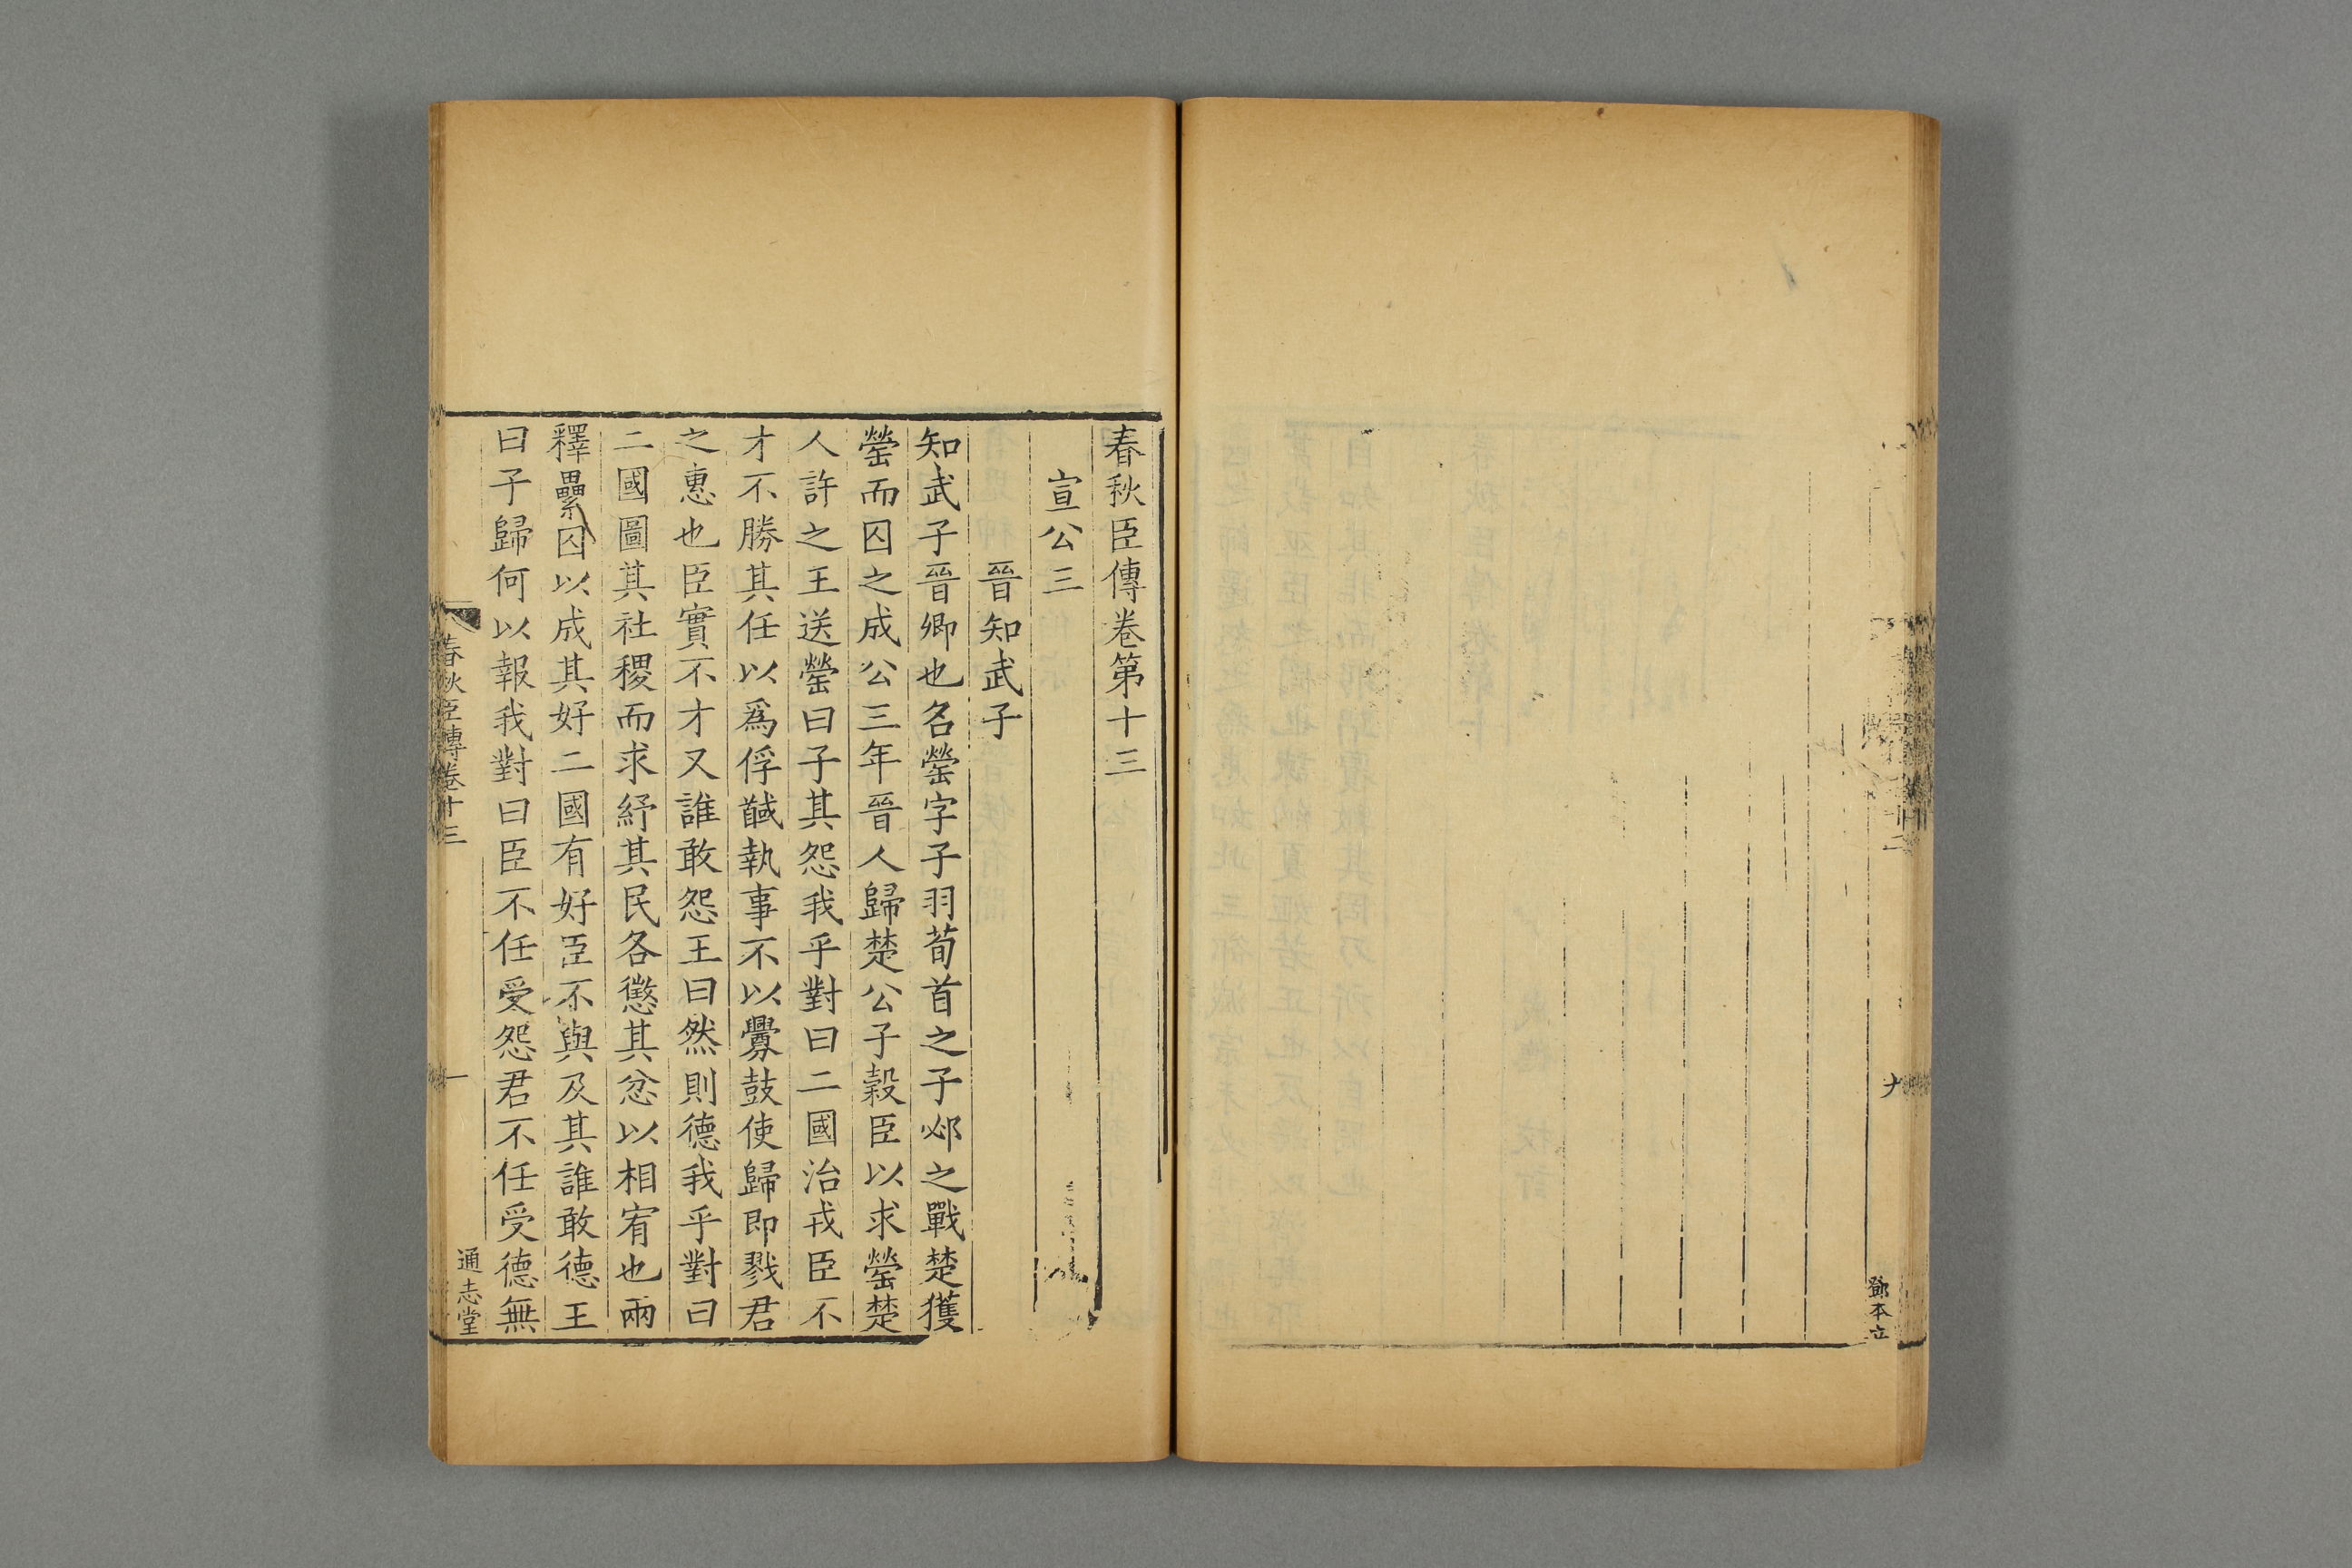 九
鄧本立
春秋臣傳卷第十三
宣公三
晉知武子
知武子晉卿也名罃字子羽荀首之子邲之戰楚獲
罃而囚之成公三年晉人歸楚公子穀臣以求罃楚
人許之王送罃曰子其怨我乎對曰二國治戎臣不
才不勝其任以爲俘馘執事不以釁鼓使歸即戮君
之惠也臣實不才又誰敢怨王曰然則德我乎對曰
二國圖其社稷而求紓其民各懲其忿以相宥也兩
釋纍囚以成其好二國有好臣不與及其誰敢德王
曰子歸何以報我對曰臣不任受怨君不任受德無
春秋臣傳卷十三
一
通志堂